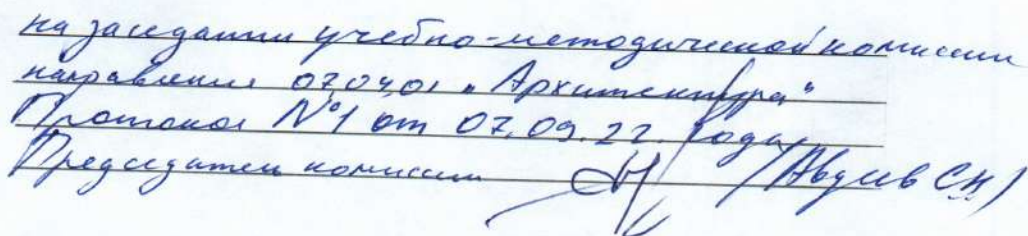 на заседании учебно-методической комиссии
направления 07.04.01 „Архитектура"
Протокол №1 от 07.09.22. года
Председатель комиссии /Авдеев СН/